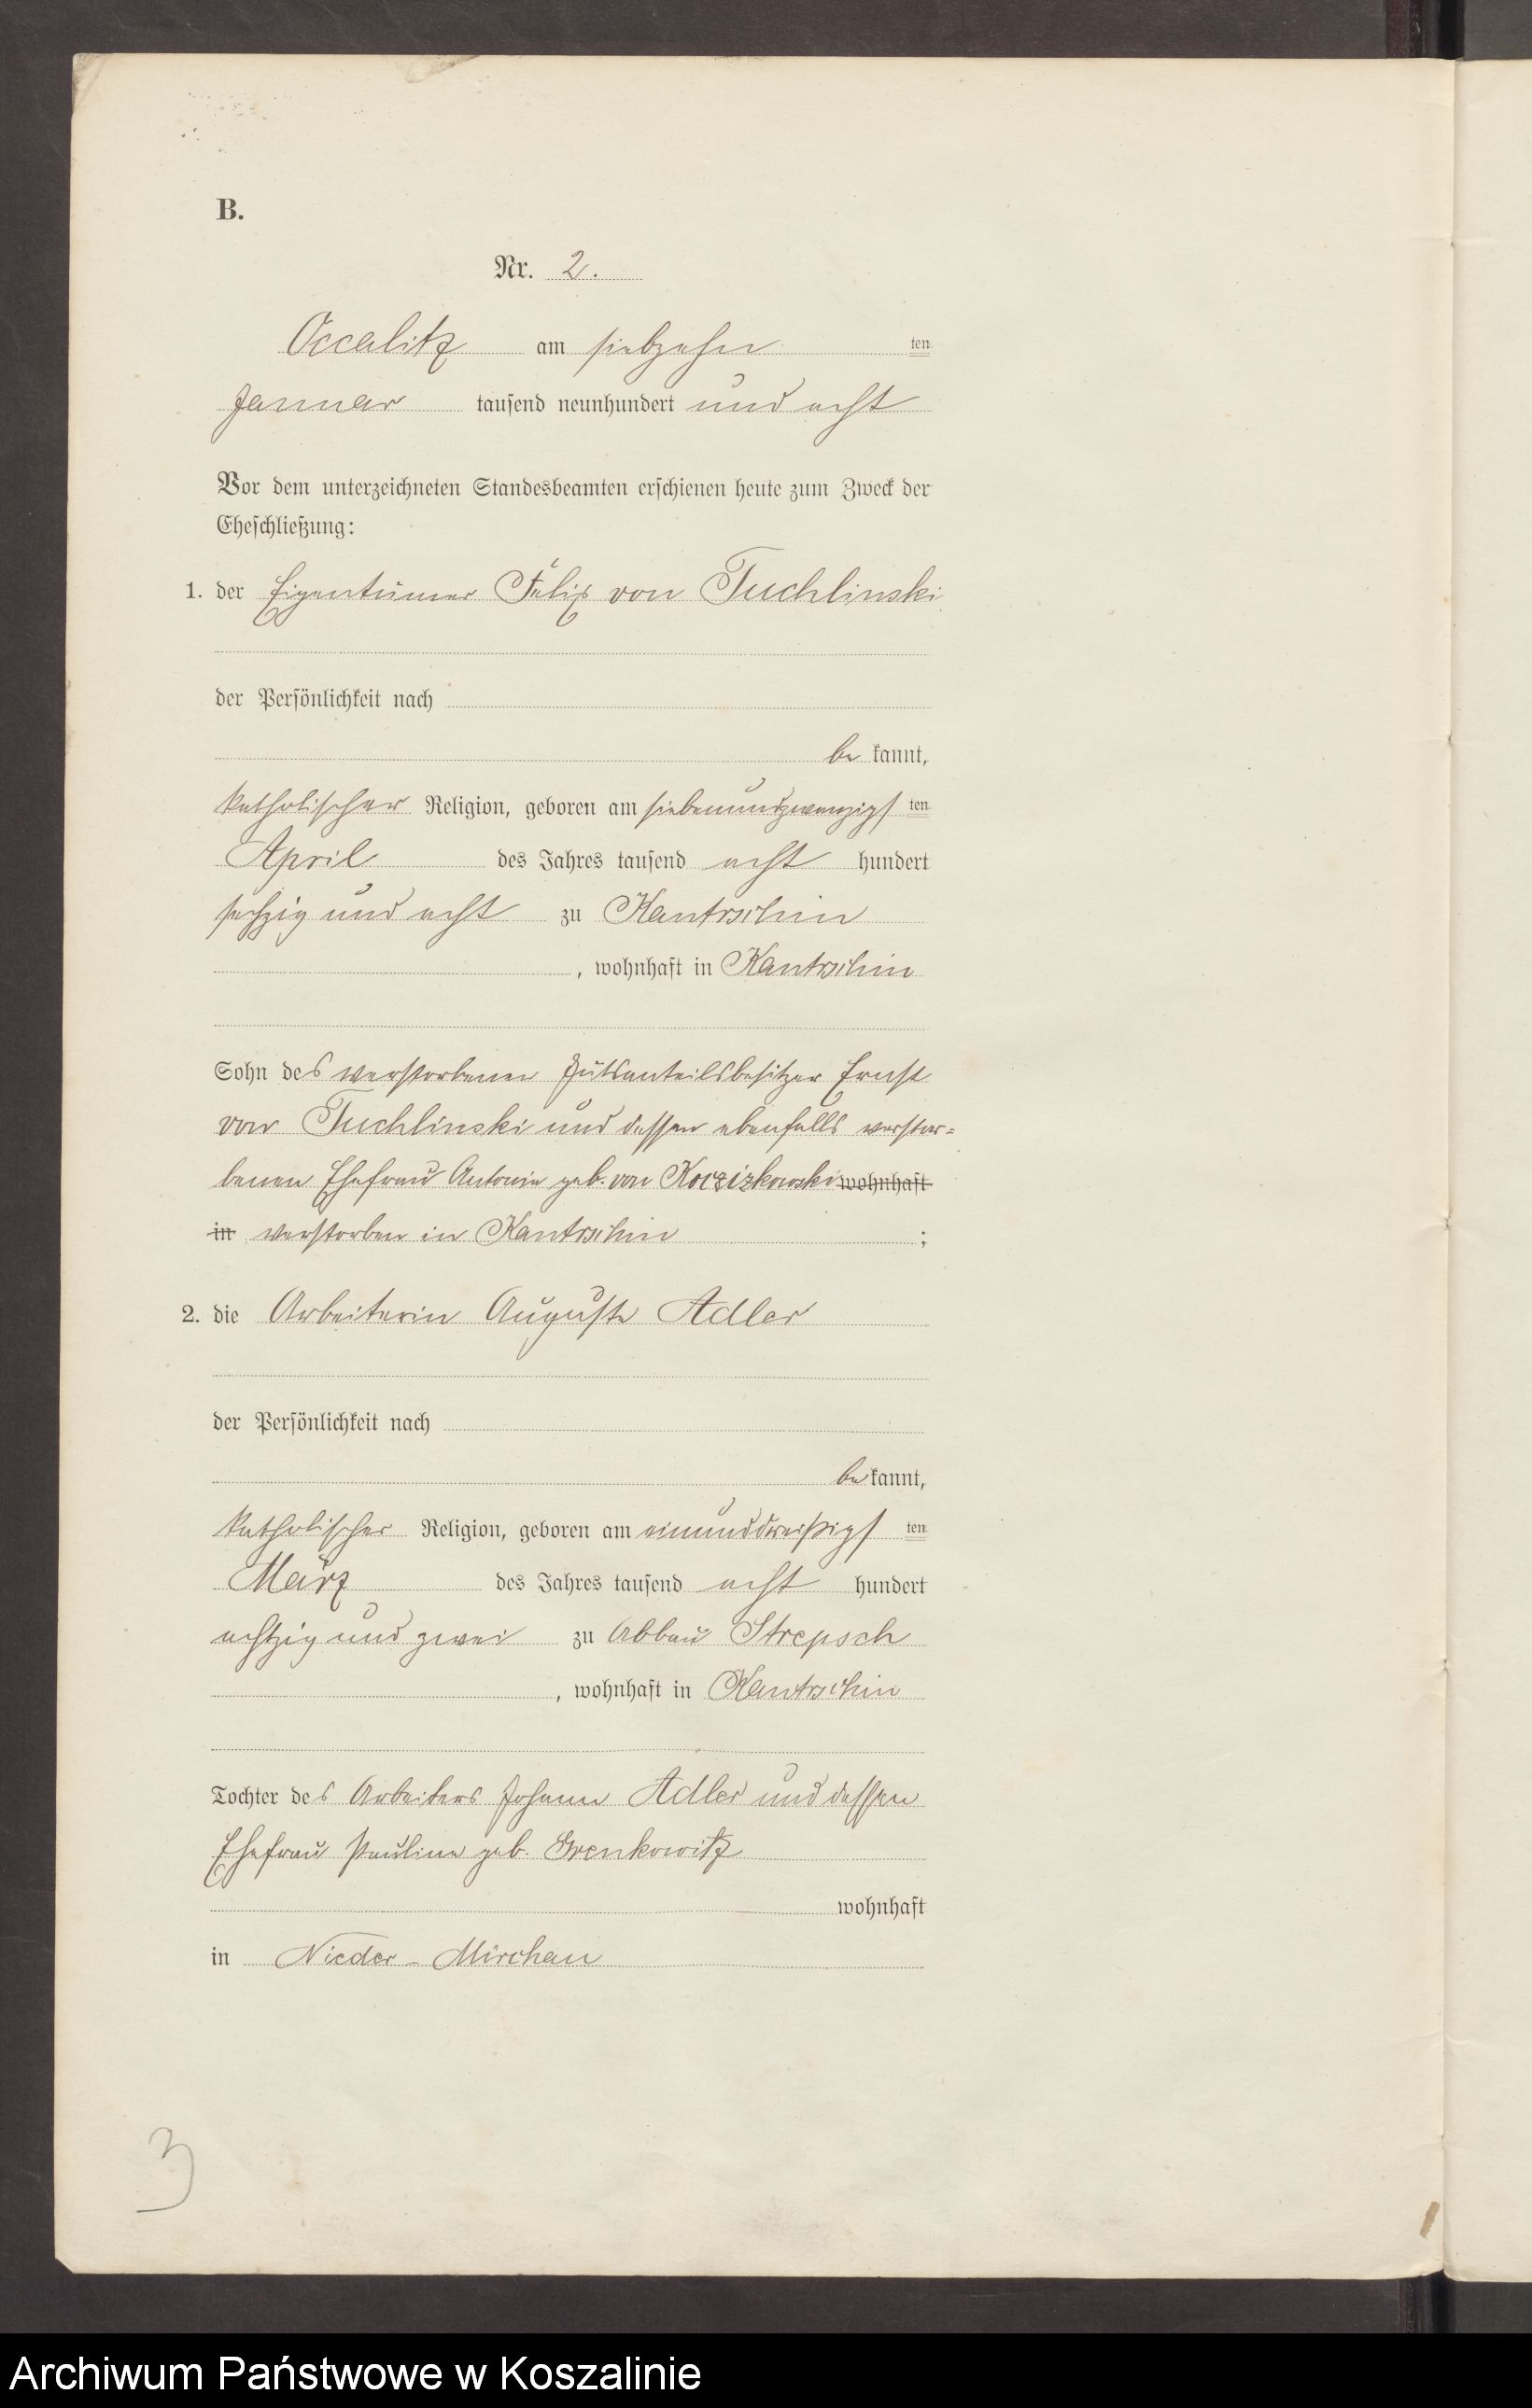 B.
Nr. 2.
Occalitz am siebzehn ten
Januar tausend neunhundert und acht
Vor dem unterzeichneten Standesbeamten erschienen heute zum Zweck der
Eheschließung:
1. der Eigentümer Felix von Tuchlinski
der Persönlichkeit nach
be kannt,
katholischer Religion, geboren am siebenundzwanzigs ten
April des Jahres tausend acht hundert
sechzig und acht zu Kantrschin
, wohnhaft in Kantrschin
Sohn des verstorbenen Gutsanteilsbesitzer Ernst
von Tuchlinski und dessen ebenfalls verstor=
benen Ehefrau Antonie geb. von Koczizkowski wohnhaft
in verstorben in Kantrschin ;
2. die Arbeiterin Auguste Adler
der Persönlichkeit nach
be kannt,
katholischer Religion, geboren am einunddreißigs ten
März des Jahres tausend acht hundert
achtzig und zwei zu Abbau Strepsch
, wohnhaft in Kantrschin
Tochter des Arbeiters Johann Adler und dessen
Ehefrau Pauline geb. Grenkowitz
wohnhaft
in Nieder-Mirchau
3
Archiwum Państwowe w Koszalinie